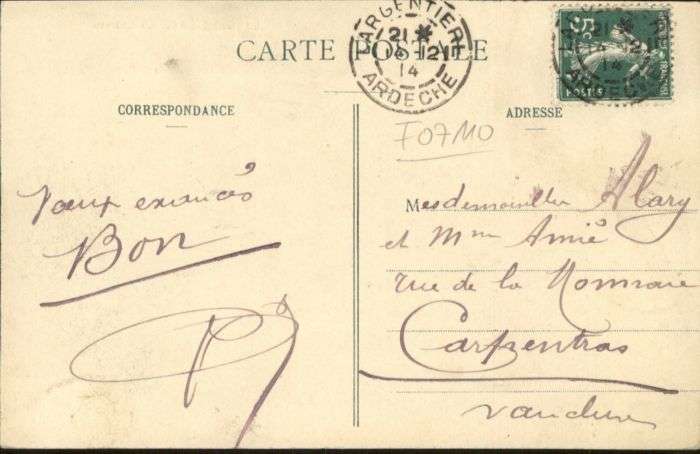 CARTE POSTALE
LARGENTIERE
21 *
14 -12
14
ARDECHE
5c
POSTES
CORRESPONDANCE
ADRESSE
F07M0
Vœux exaucés
Bon
Mesdemoiselles Alary
et Mme Amié
rue de la Monnaie
Carpentras
Vaucluse